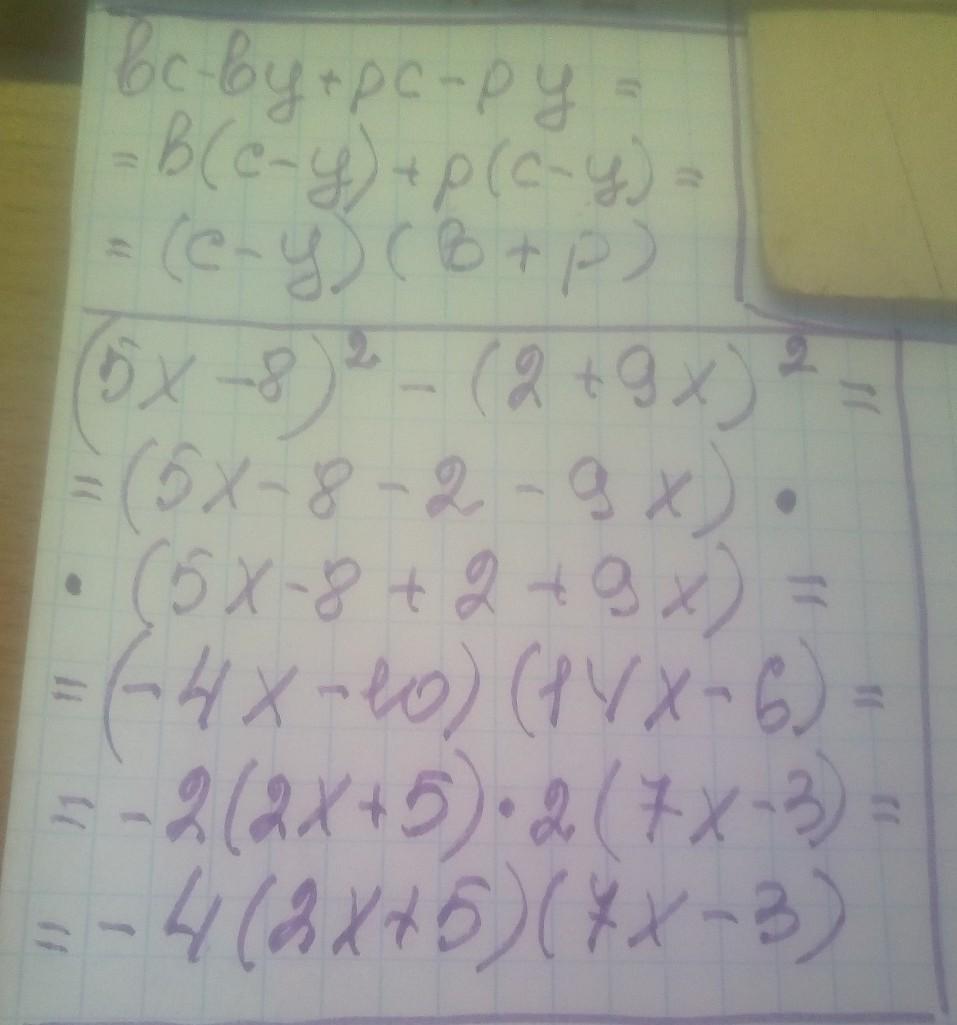 bc-by+pc-py=
=b(c-y)+p(c-y)=
=(c-y)(b+p)
(5x-8)²-(2+9x)²=
=(5x-8-2-9x)·
·(5x-8+2+9x)=
=(-4x-10)(14x-6)=
=-2(2x+5)·2(7x-3)=
=-4(2x+5)(7x-3)